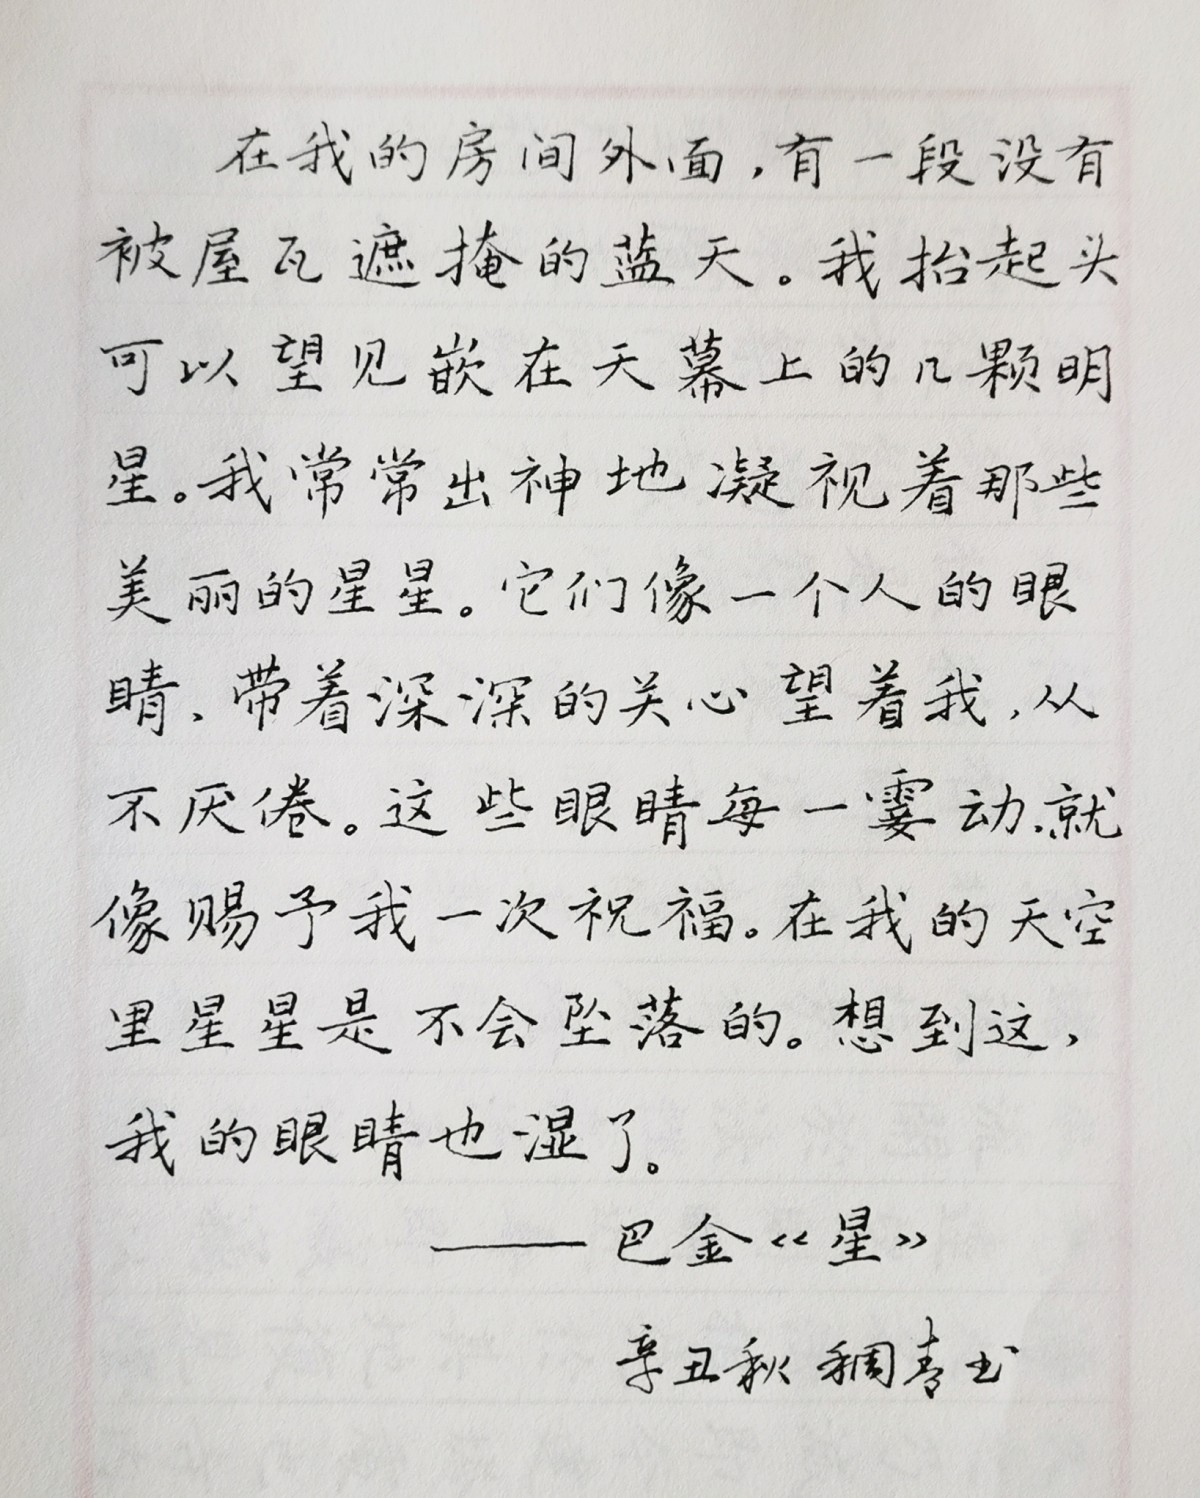 在我的房间外面,有一段没有
被屋瓦遮掩的蓝天。我抬起头
可以望见嵌在天幕上的几颗明
星。我常常出神地凝视着那些
美丽的星星。它们像一个人的眼
睛、带着深深的关心望着我,从
不厌倦。这些眼睛每一霎动、就
像赐予我一次祝福。在我的天空
里星星是不会坠落的。想到这,
我的眼睛也湿了。
——巴金《星》
辛丑秋 稠青书